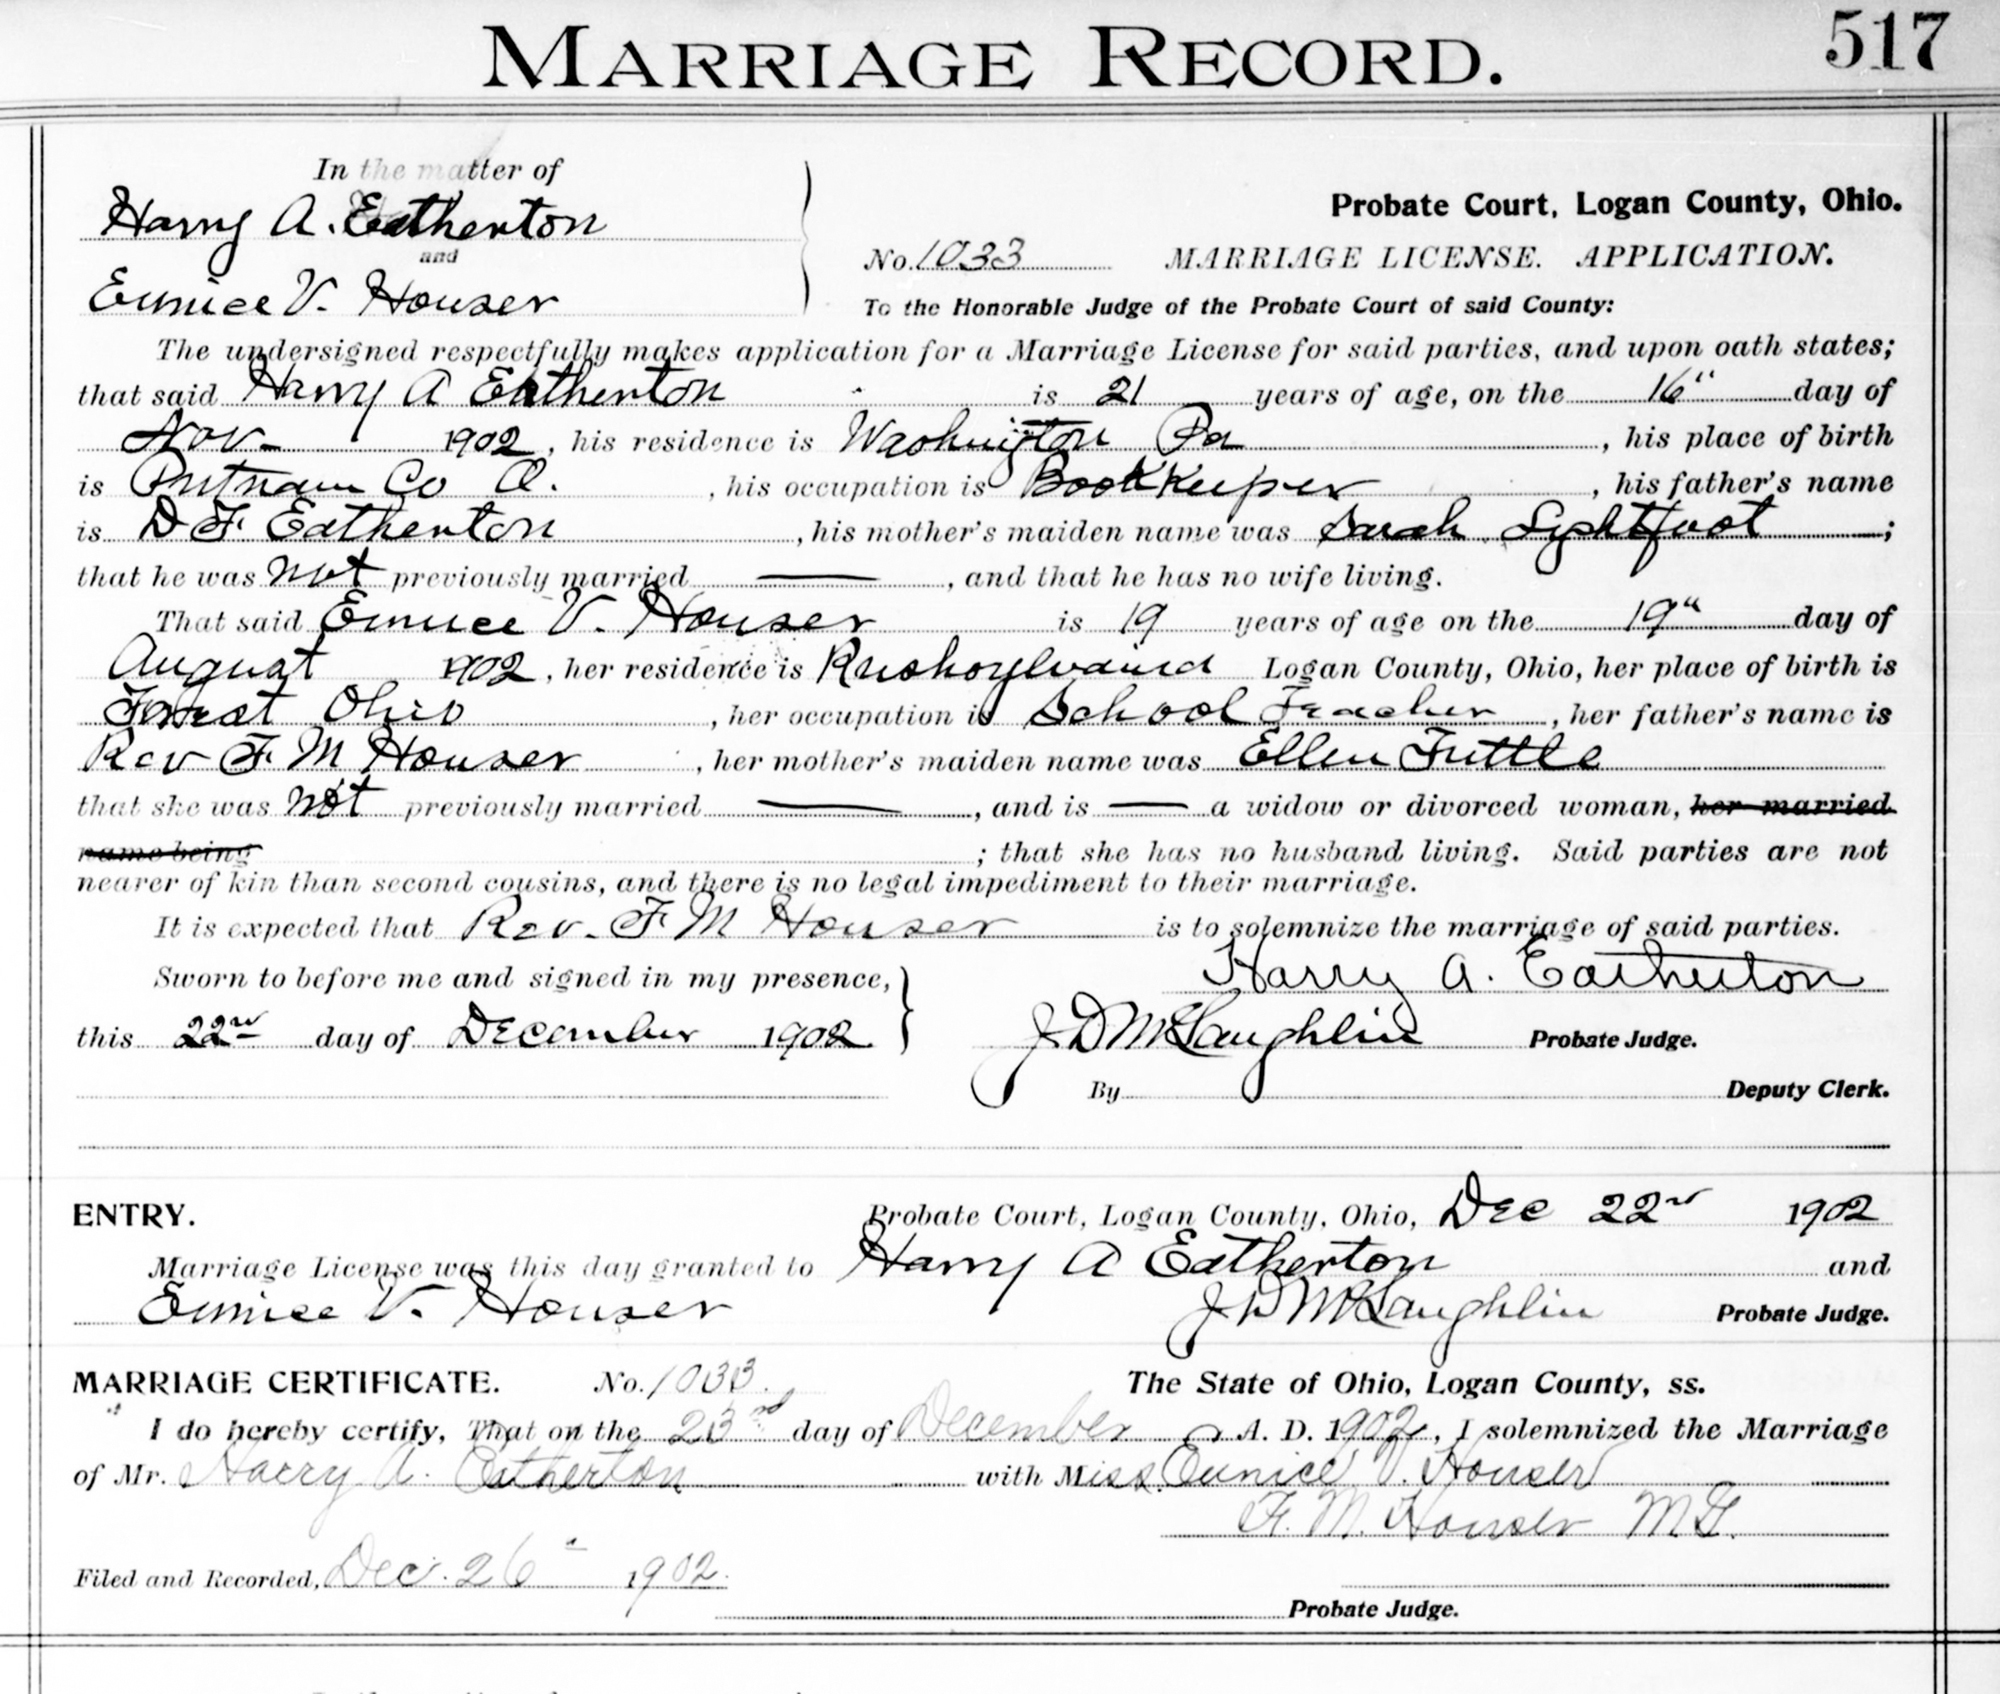 MARRIAGE RECORD. 517
In the matter of
Harry A. Eatherton
and
Eunice V. Houser
Probate Court, Logan County, Ohio.
No. 1033 MARRIAGE LICENSE. APPLICATION.
To the Honorable Judge of the Probate Court of said County:
The undersigned respectfully makes application for a Marriage License for said parties, and upon oath states;
that said Harry A Eatherton is 21 years of age, on the 16" day of
Nov- 1902, his residence is Washington Pa, his place of birth
is Putnam Co O., his occupation is Bookkeeper, his father's name
is D F Eatherton, his mother's maiden name was Sarah Lightfoot;
that he was not previously married —, and that he has no wife living.
That said Eunice V. Houser is 19 years of age on the 19" day of
August 1902, her residence is Rushsylvania Logan County, Ohio, her place of birth is
Forest Ohio, her occupation is School Teacher, her father's name is
Rev F M Houser, her mother's maiden name was Ellen Tuttle
that she was not previously married —, and is — a widow or divorced woman, her married
name being ; that she has no husband living. Said parties are not
nearer of kin than second cousins, and there is no legal impediment to their marriage.
It is expected that Rev. F M Houser is to solemnize the marriage of said parties.
Sworn to before me and signed in my presence,
Harry A. Eatherton
this 22nd day of December 1902.
J D McLaughlin Probate Judge.
By Deputy Clerk.
ENTRY. Probate Court, Logan County, Ohio, Dec 22nd 1902
Marriage License was this day granted to Harry A Eatherton and
Eunice V. Houser J D McLaughlin Probate Judge.
MARRIAGE CERTIFICATE. No. 1033. The State of Ohio, Logan County, ss.
I do hereby certify, That on the 23rd day of December A. D. 1902, I solemnized the Marriage
of Mr. Harry A. Eatherton with Miss Eunice V. Houser
F. M. Houser M.G.
Filed and Recorded, Dec. 26" 1902.
Probate Judge.